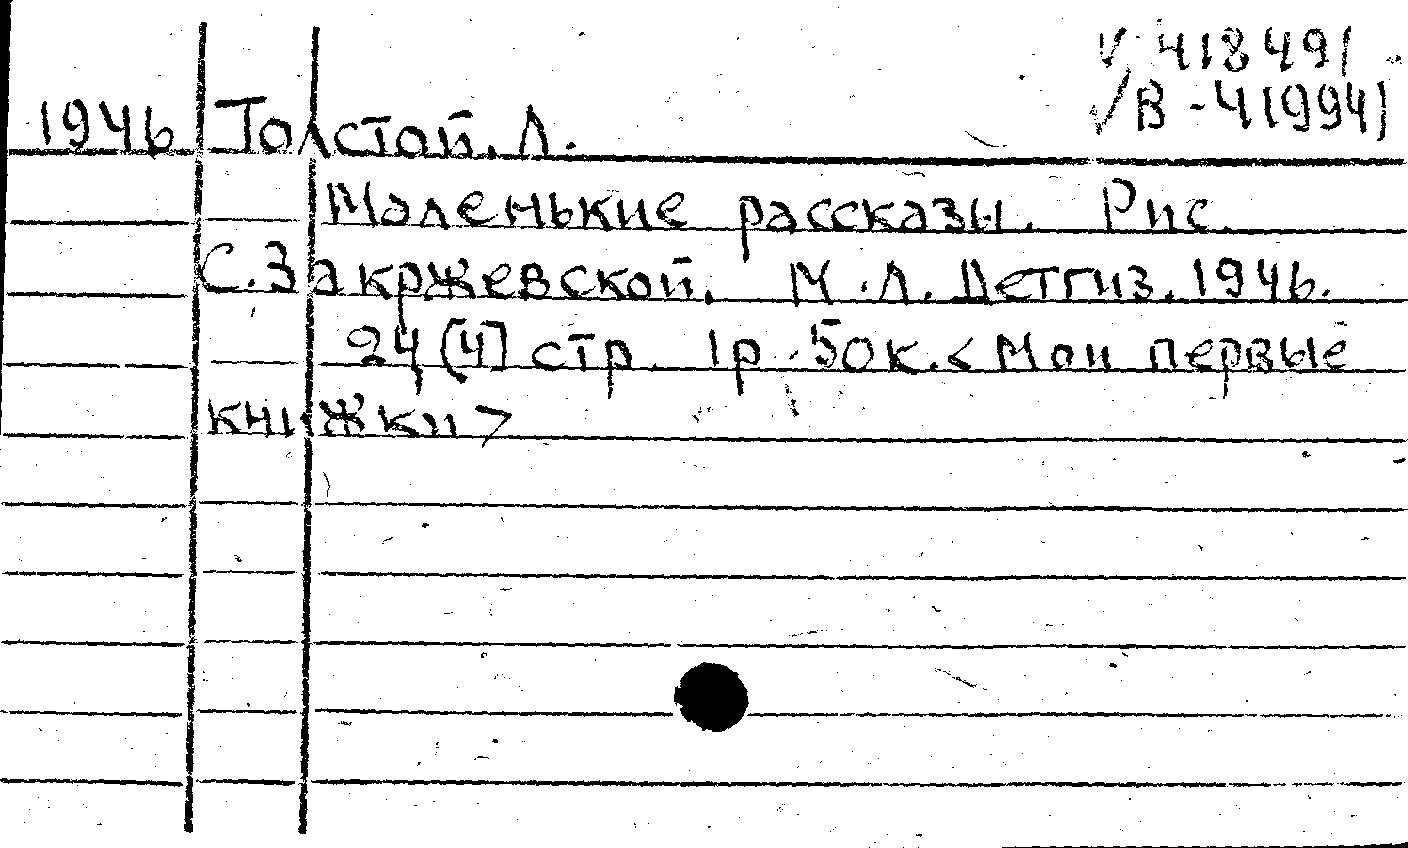 √ 41849/
√В-41994)
1946 Толстой, Л.
Маленькие рассказы. Рис.
С. Закржевской. М.-Л. Детгиз. 1946.
24 [4] стр. 1 р. 50 к. < Мои первые
книжки >